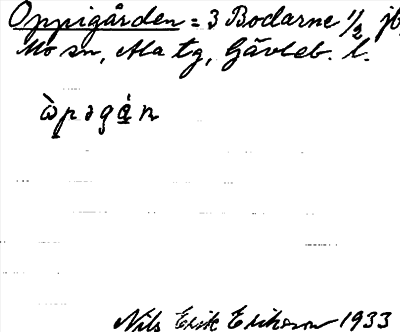 Oppigården = 3 Bodarne 1/2 jb,
Mo sn, Ala tg, Gävleb. l.
ò̱pəgá̱n
Nils Erik Erikson 1933